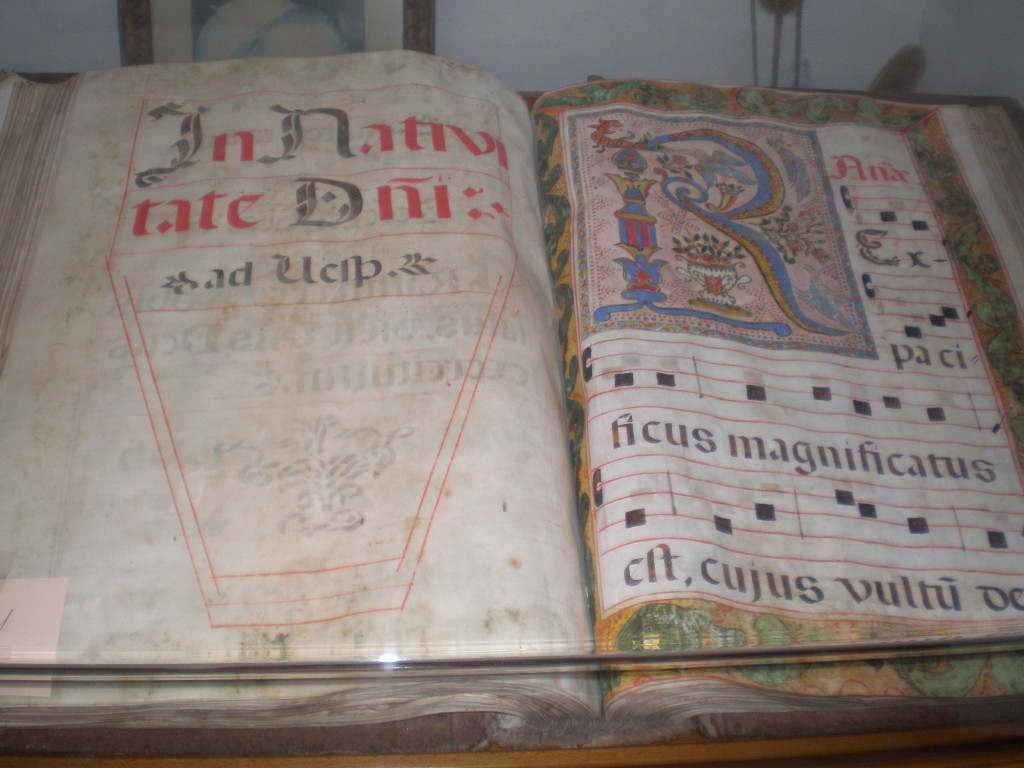 In Nativi
tate Dñi
ad Vesp.
R Anã.
Ex-
paci-
ficus magnificatus
est, cujus vultũ de